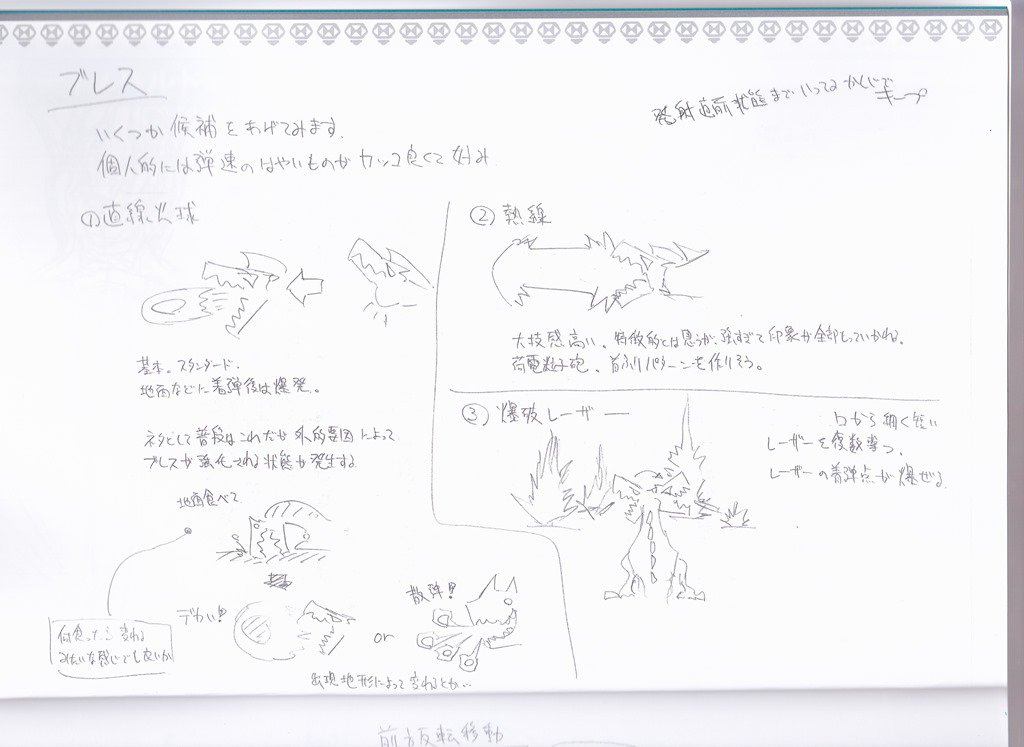 ブレス
発射直前状態までいってるかんじで
キープ
いくつか候補をあげてみます.
個人的には弾速のはやいものがカッコ良くて好み
①直線火球
基本。スタンダード.
地面などに着弾後は爆発。
ネタとして普段はこれだが外的要因によって
ブレスが強化される状態が発生する
地面食べて
何食ったら変わる
みたいな感じでも良いか
デカい!!
or
散弾!!
出現地形によって変わるとか…
②熱線
大技感高い。特徴的とは思うが、強すぎて印象が全部もっていかれる.
荷電粒子砲、首ふりパターンも作りそう。
③爆破レーザー
口から細く短い
レーザーを複数撃つ.
レーザーの着弾点が爆ぜる.
前方反転移動